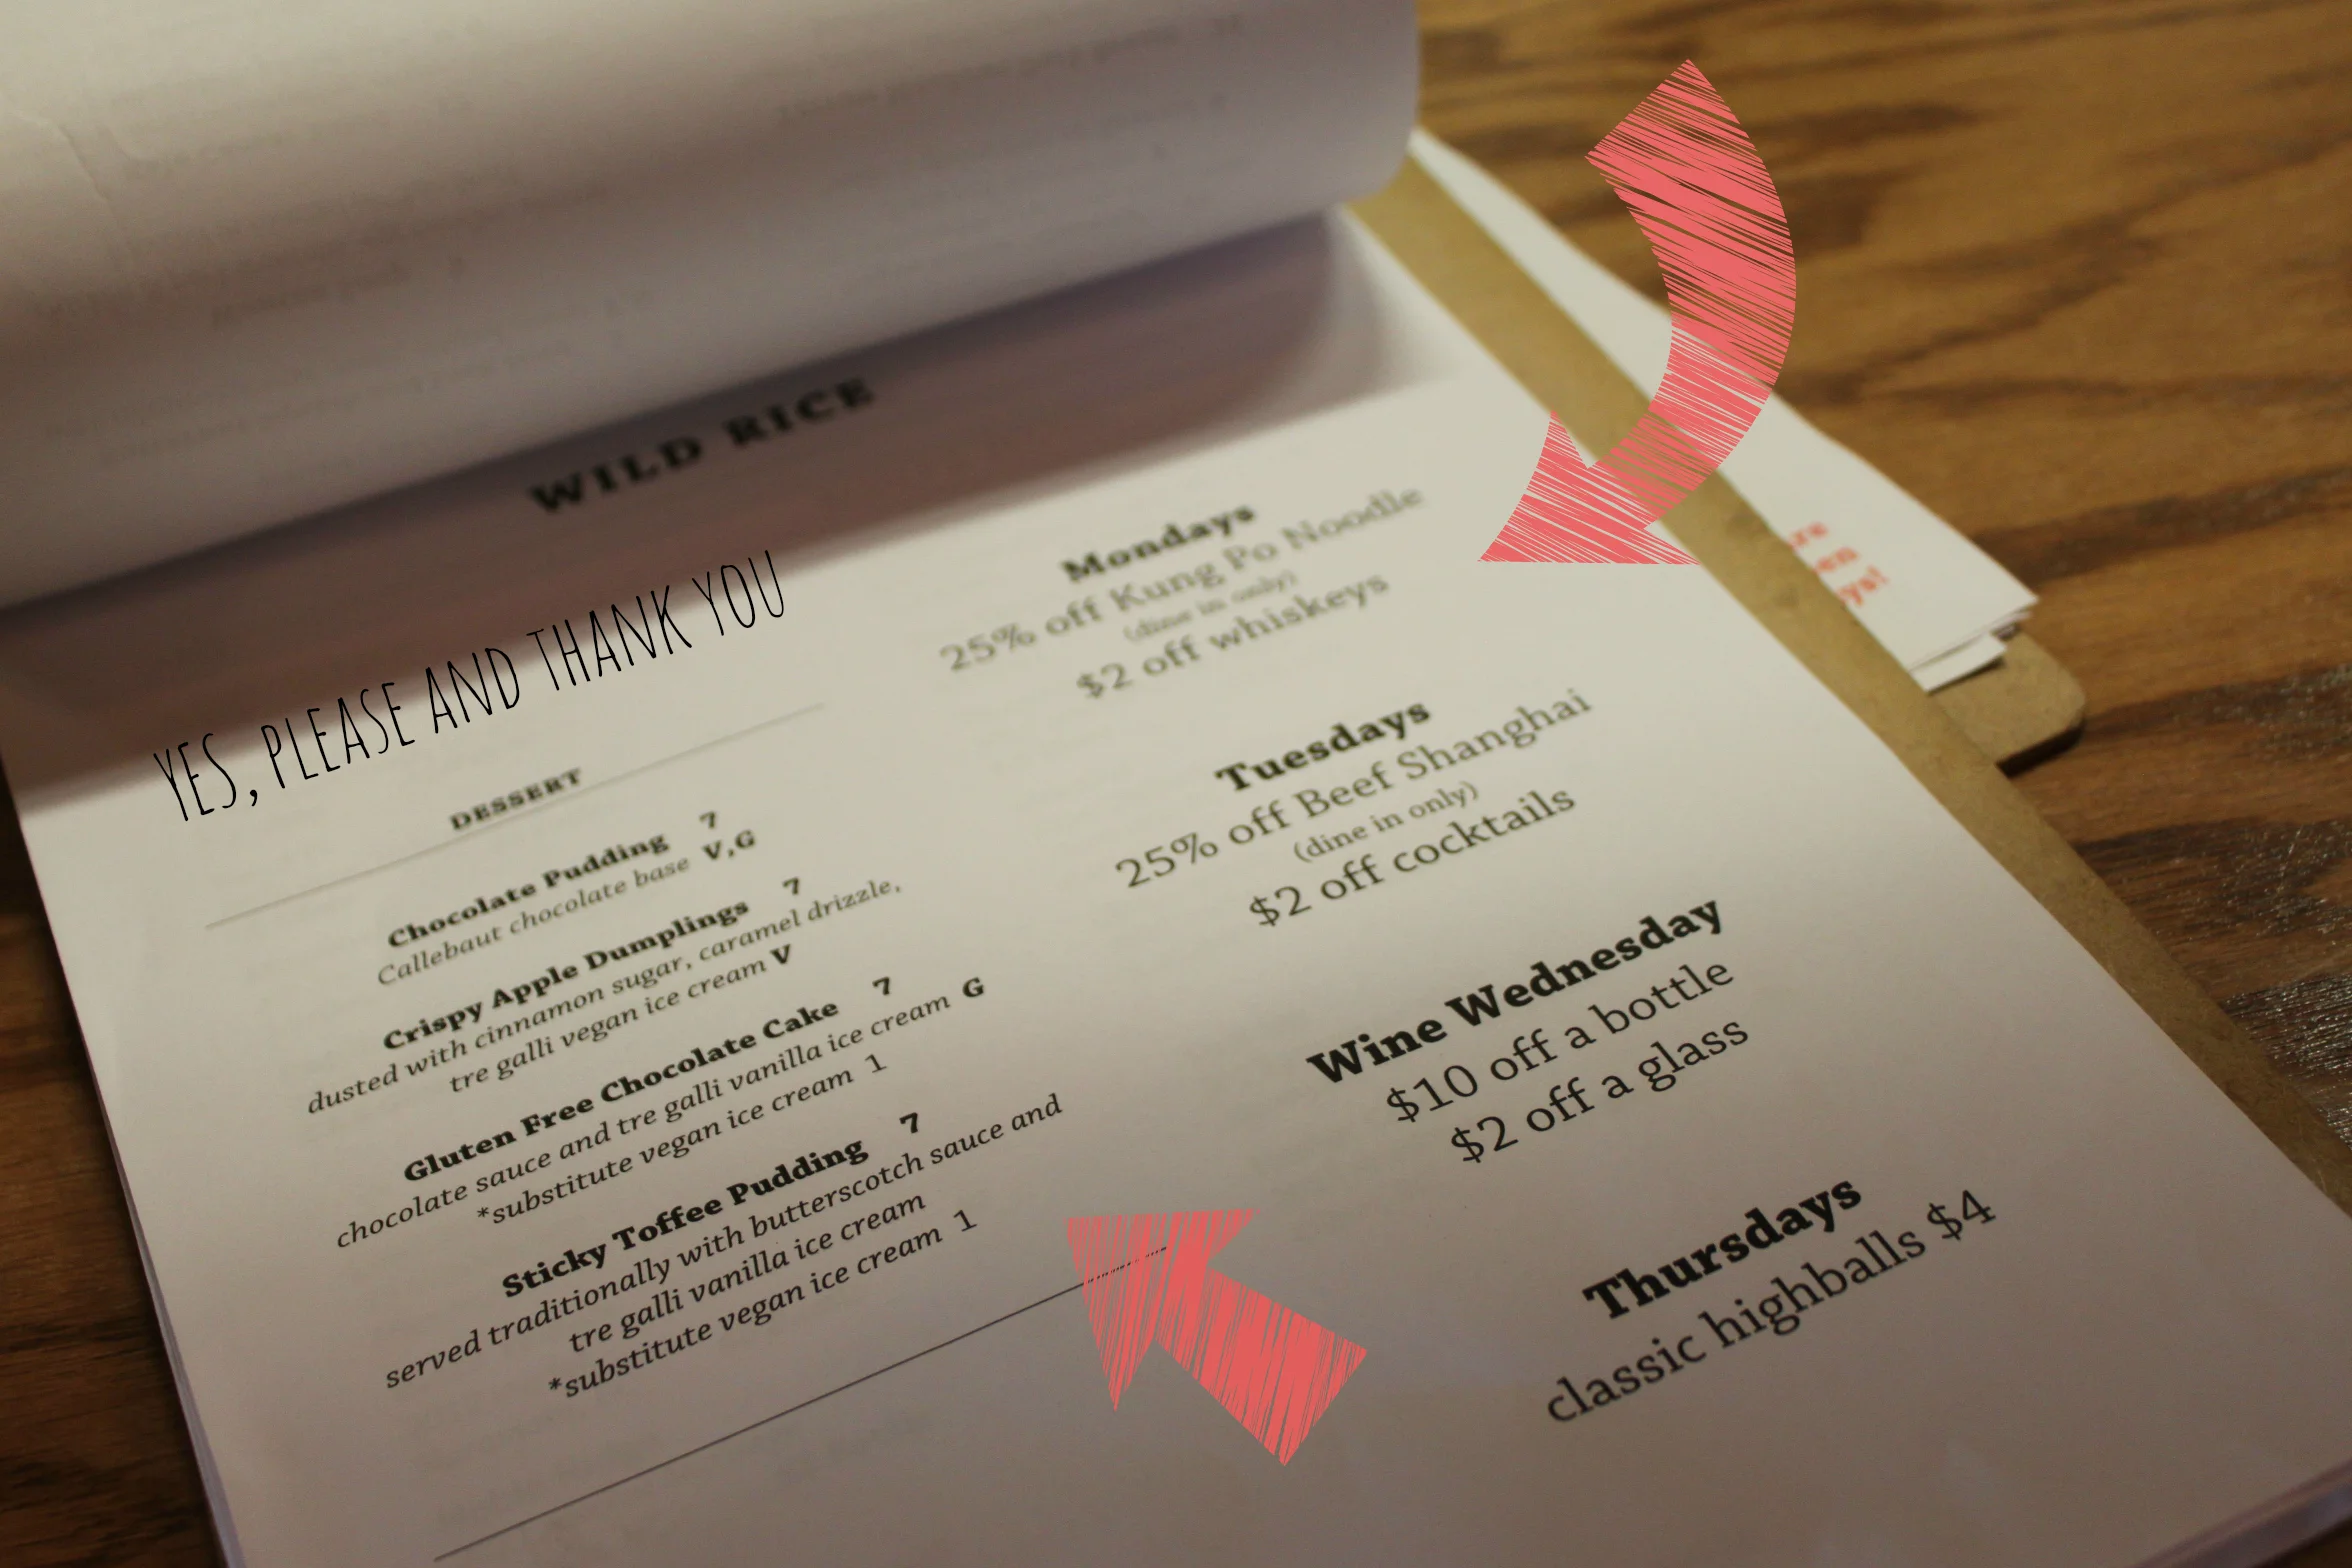 WILD RICE
YES, PLEASE AND THANK YOU
DESSERT
Chocolate Pudding 7
Callebaut chocolate base V,G
Crispy Apple Dumplings 7
dusted with cinnamon sugar, caramel drizzle,
tre galli vegan ice cream V
Gluten Free Chocolate Cake 7
chocolate sauce and tre galli vanilla ice cream G
*substitute vegan ice cream 1
Sticky Toffee Pudding 7
served traditionally with butterscotch sauce and
tre galli vanilla ice cream
*substitute vegan ice cream 1
Mondays
25% off Kung Po Noodle
(dine in only)
$2 off whiskeys
Tuesdays
25% off Beef Shanghai
(dine in only)
$2 off cocktails
Wine Wednesday
$10 off a bottle
$2 off a glass
Thursdays
classic highballs $4